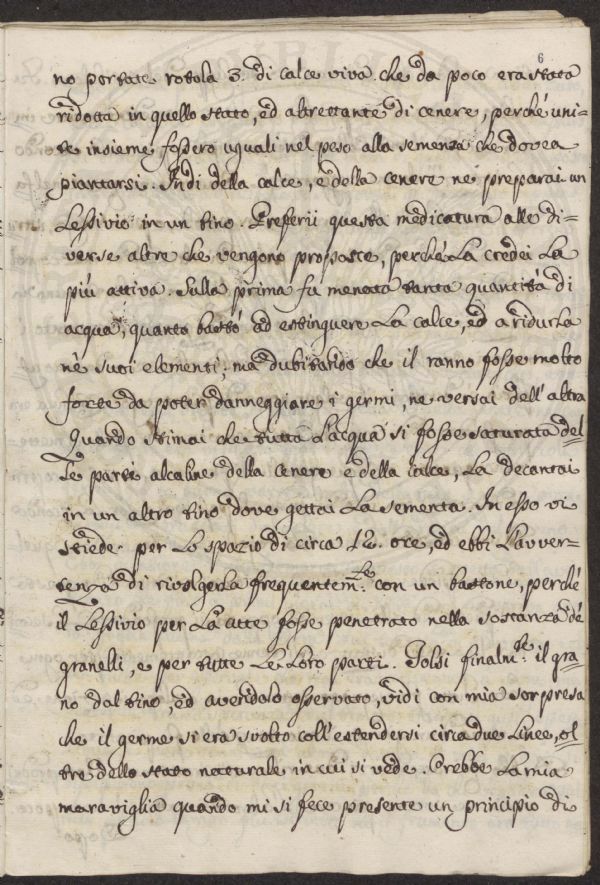 6
no portate rotola 3. di calce viva che da poco era stata
ridotta in quello stato, ed altrettante di cenere, perché uni-
te insieme fossero uguali nel peso alla semenza che dovea
piantarsi. Indi della calce, e della cenere ne preparai un
Lessivio in un tino. Prefferii questa medicatura alle di-
verse altre che vengono proposte, perché La credei La
più attiva. Sulla prima fù menata tanta quantità di
acqua, quanta bastò ad estinguere La calce, ed a ridurla
né suoi elementi; ma dubitando che il ranno fosse molto
forte da poter danneggiare i germi, ne versai dell'altra
Quando stimai che tutta L'acqua si fosse saturata del-
le parti alcaline della cenere e della calce, La decantai
in un altro tino dove gettai La sementa. In esso vi
stiede per Lo spazio di circa 12. ore, ed ebbi L'avver-
tenza di rivolgerla frequentem.te con un bastone, perché
il Lessivio per La atte fosse penetrato nella sostanza dé
granelli, e per tutte Le Loro parti. Tolsi finalm.te il gra-
no dal tino, ed avendolo osservato, vidi con mia sorpresa
che il germe si era svolto coll'estendersi circa due Linee, ol-
tre dello stato naturale in cui si vede. Crebbe La mia
maraviglia quando mi si fece presente un principio di